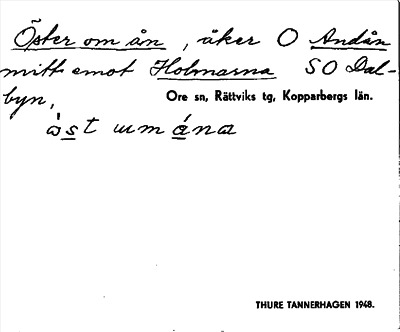 Öster om ån, åker O Andån
mitt emot Holmarna SO Dal-
byn, Ore sn, Rättviks tg, Kopparbergs län.
THURE TANNERHAGEN 1948.